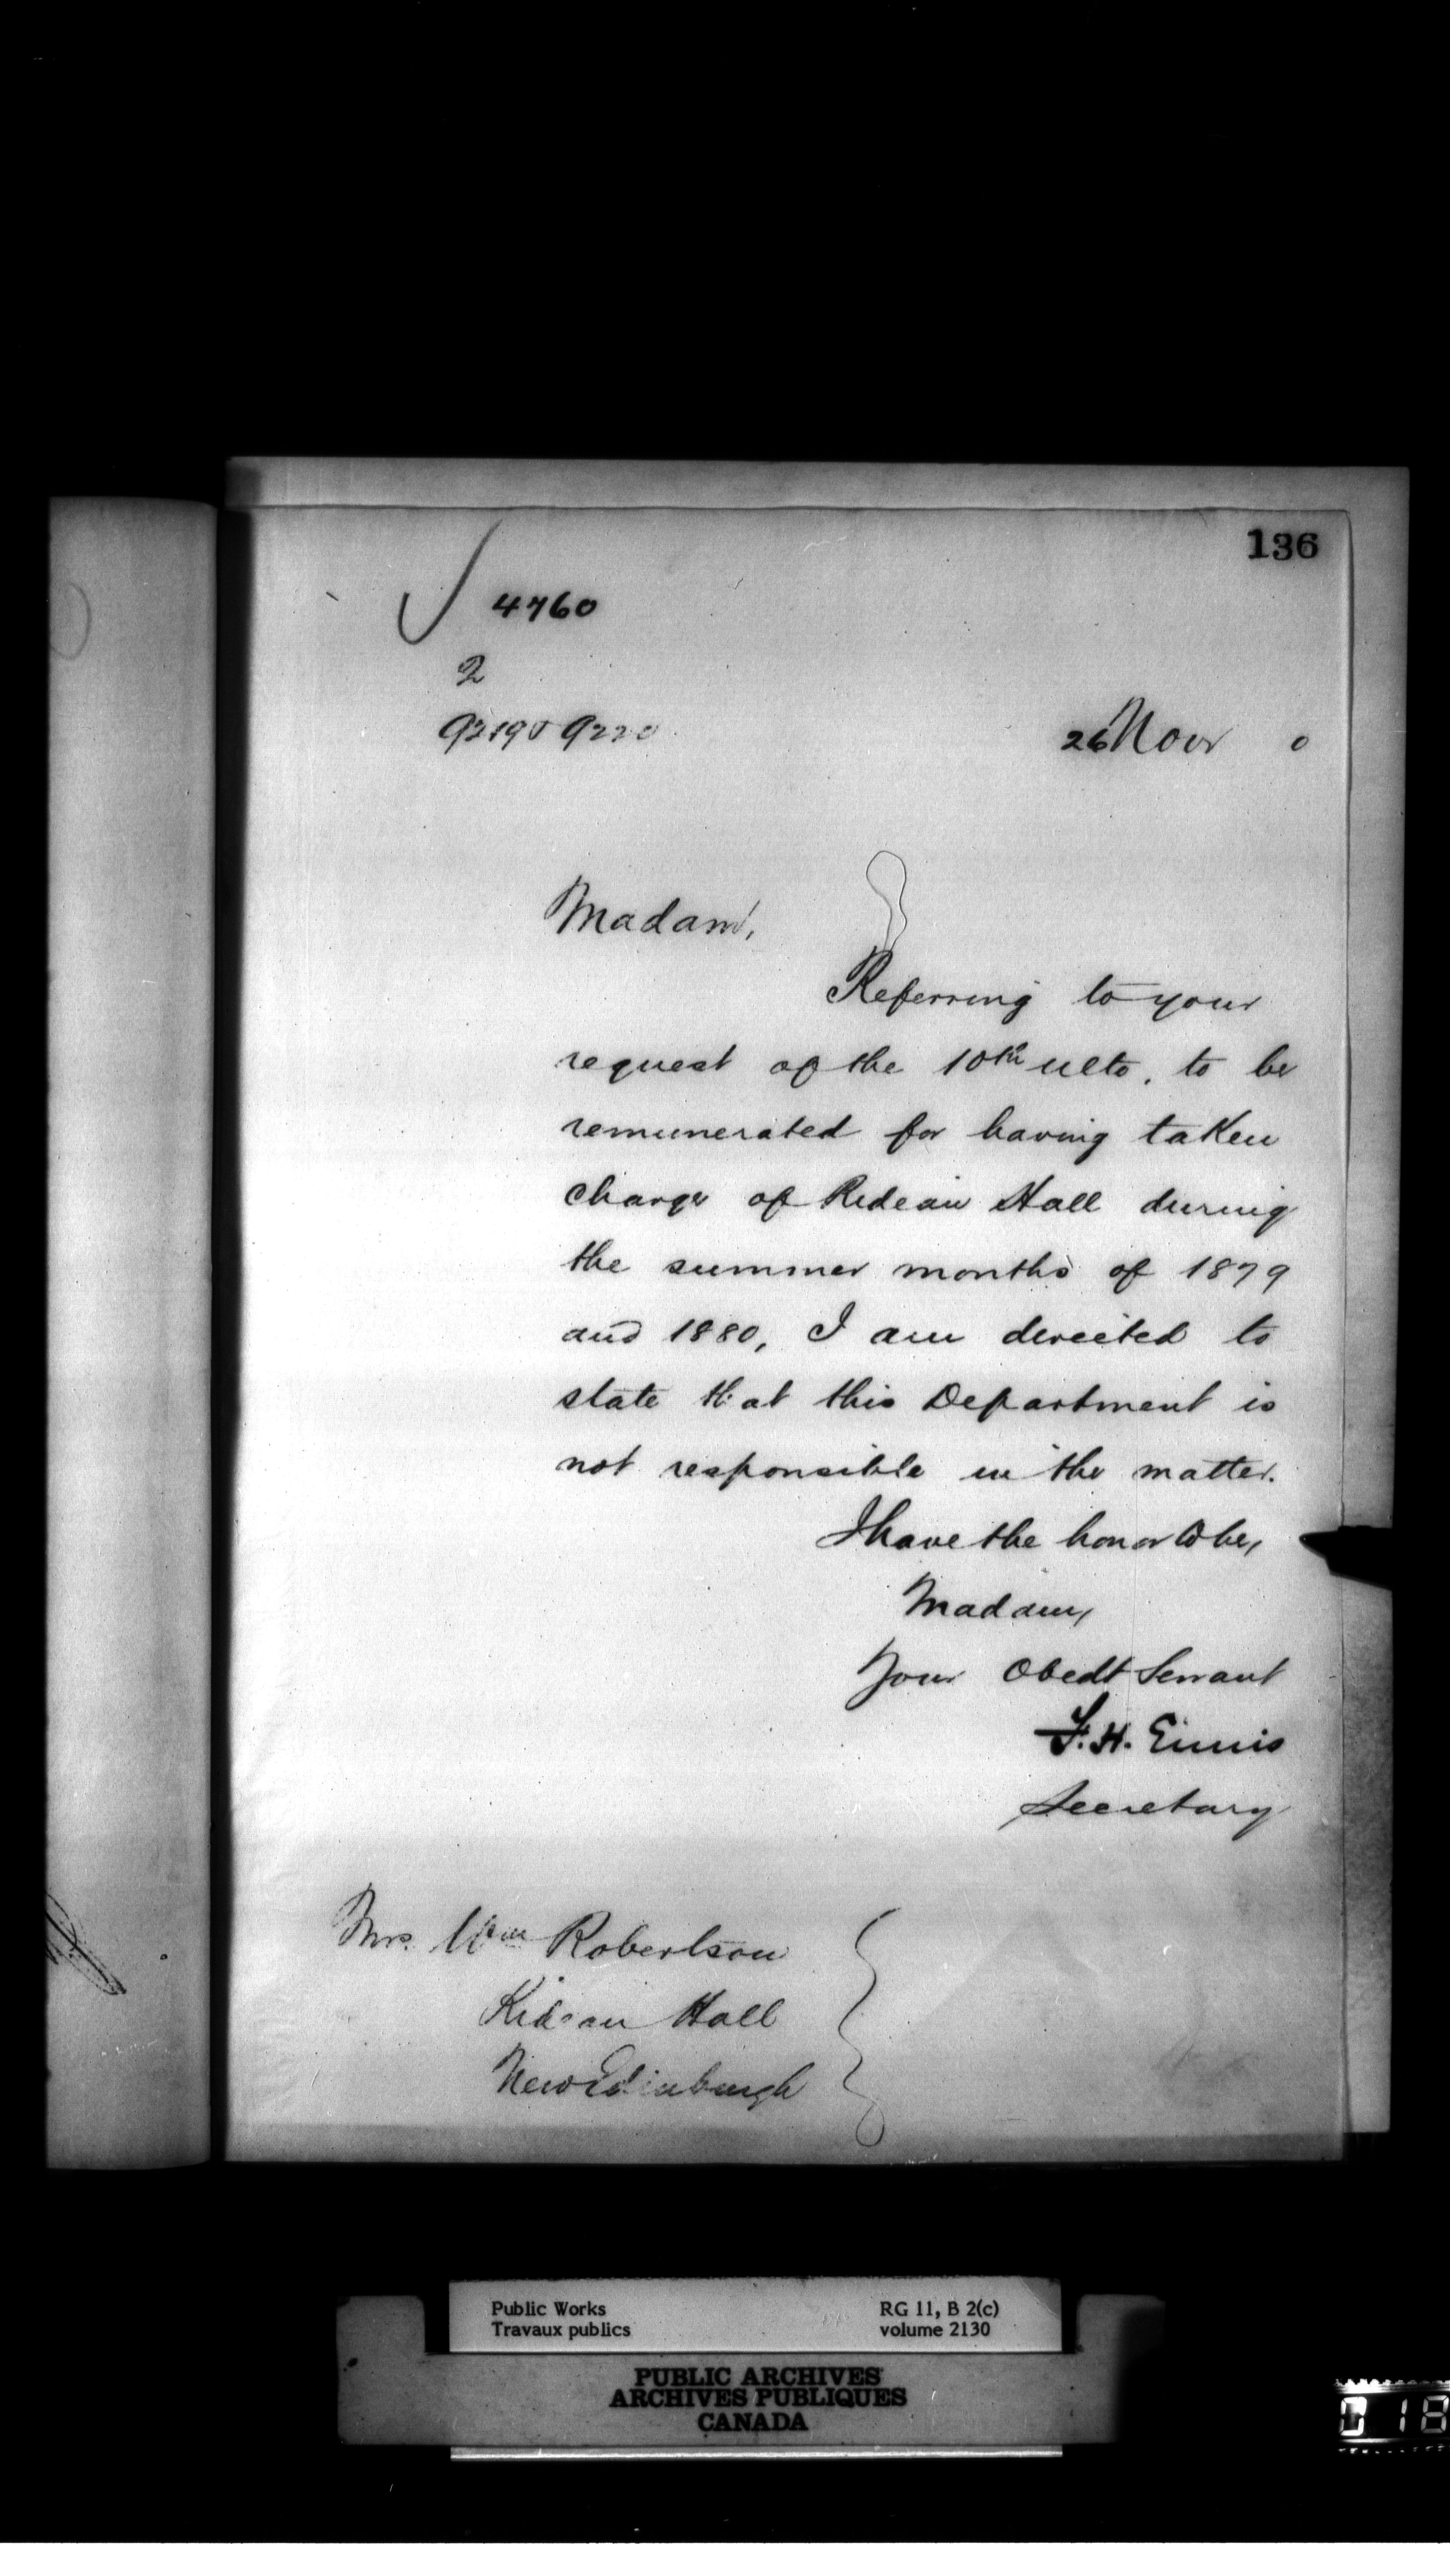 136
4760
2
26 Novr 0
Madam,
Referring to your
request of the 10th ulto, to be
remunerated for having taken
charge of Rideau Hall during
the summer months of 1879
and 1880, I am directed to
state that this Department is
not responsible in the matter.
I have the honor to be,
Madam,
Your Obedt Servant
F. H. Ennis
Secretary
Mrs. Wm Robertson
Rideau Hall
New Edinburgh
Public Works
Travaux publics
RG 11, B 2(c)
volume 2130
PUBLIC ARCHIVES
ARCHIVES PUBLIQUES
CANADA